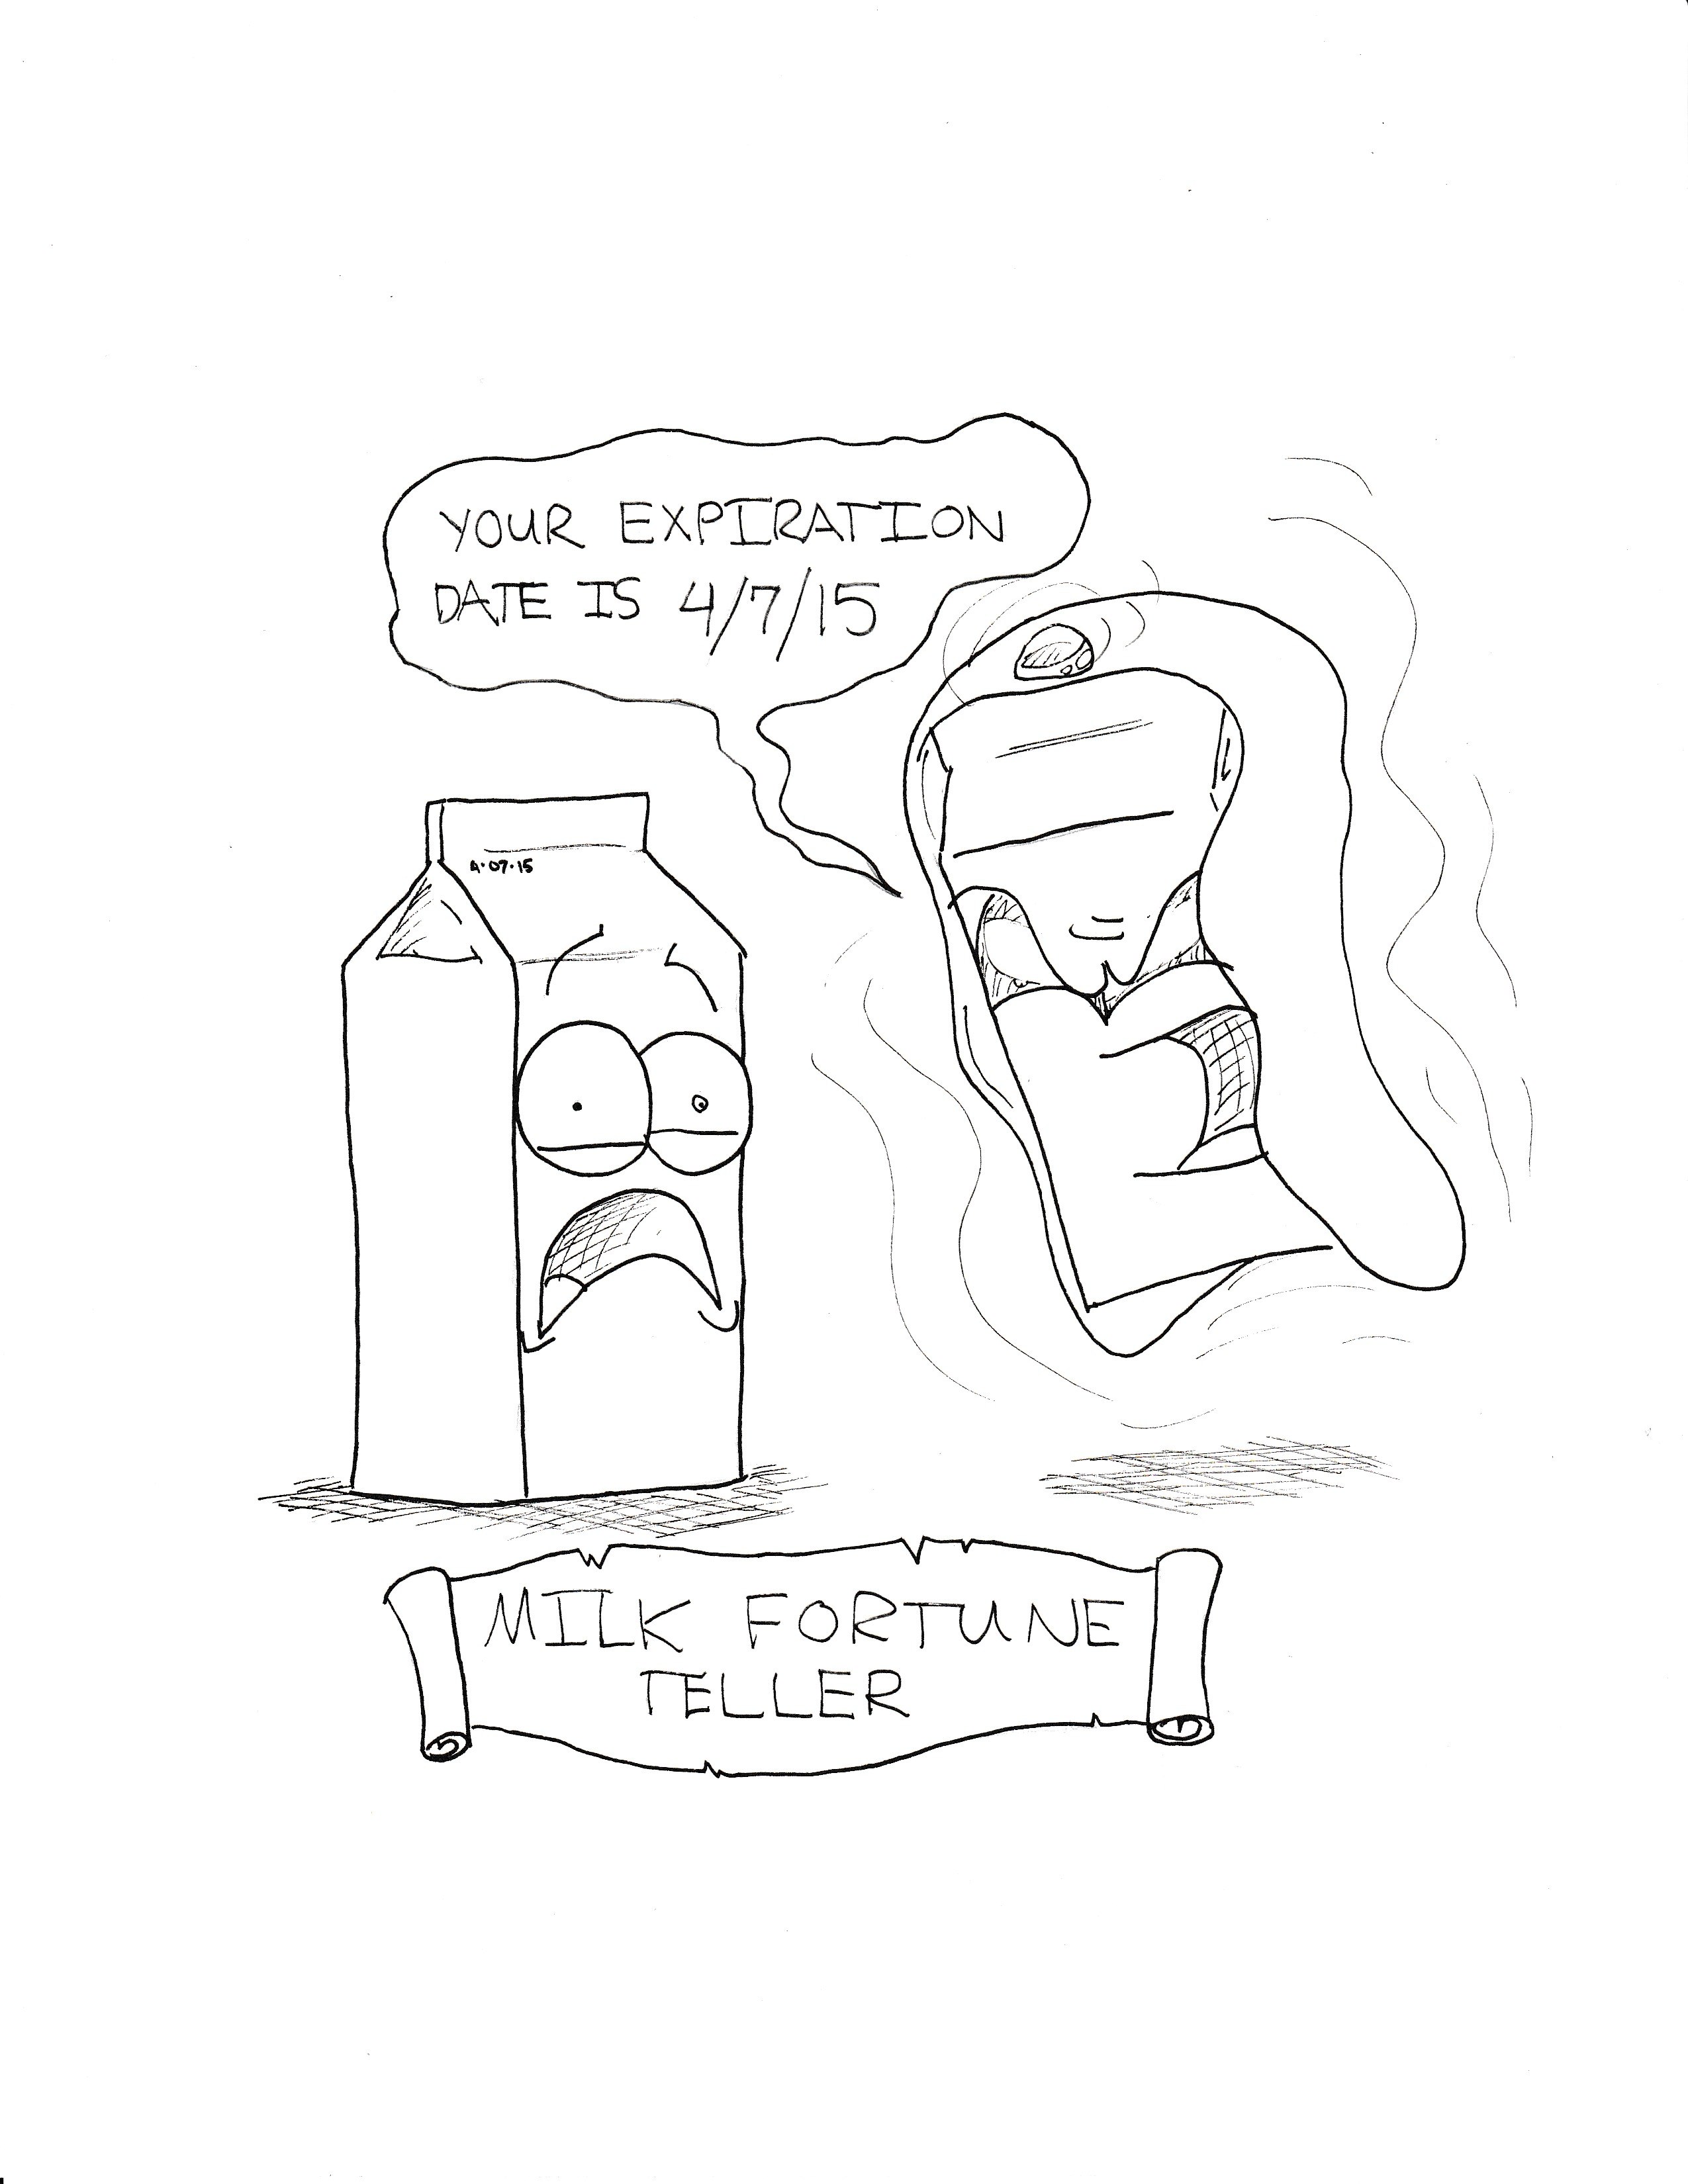 YOUR EXPIRATION
DATE IS 4/7/15
4.07.15
MILK FORTUNE
TELLER